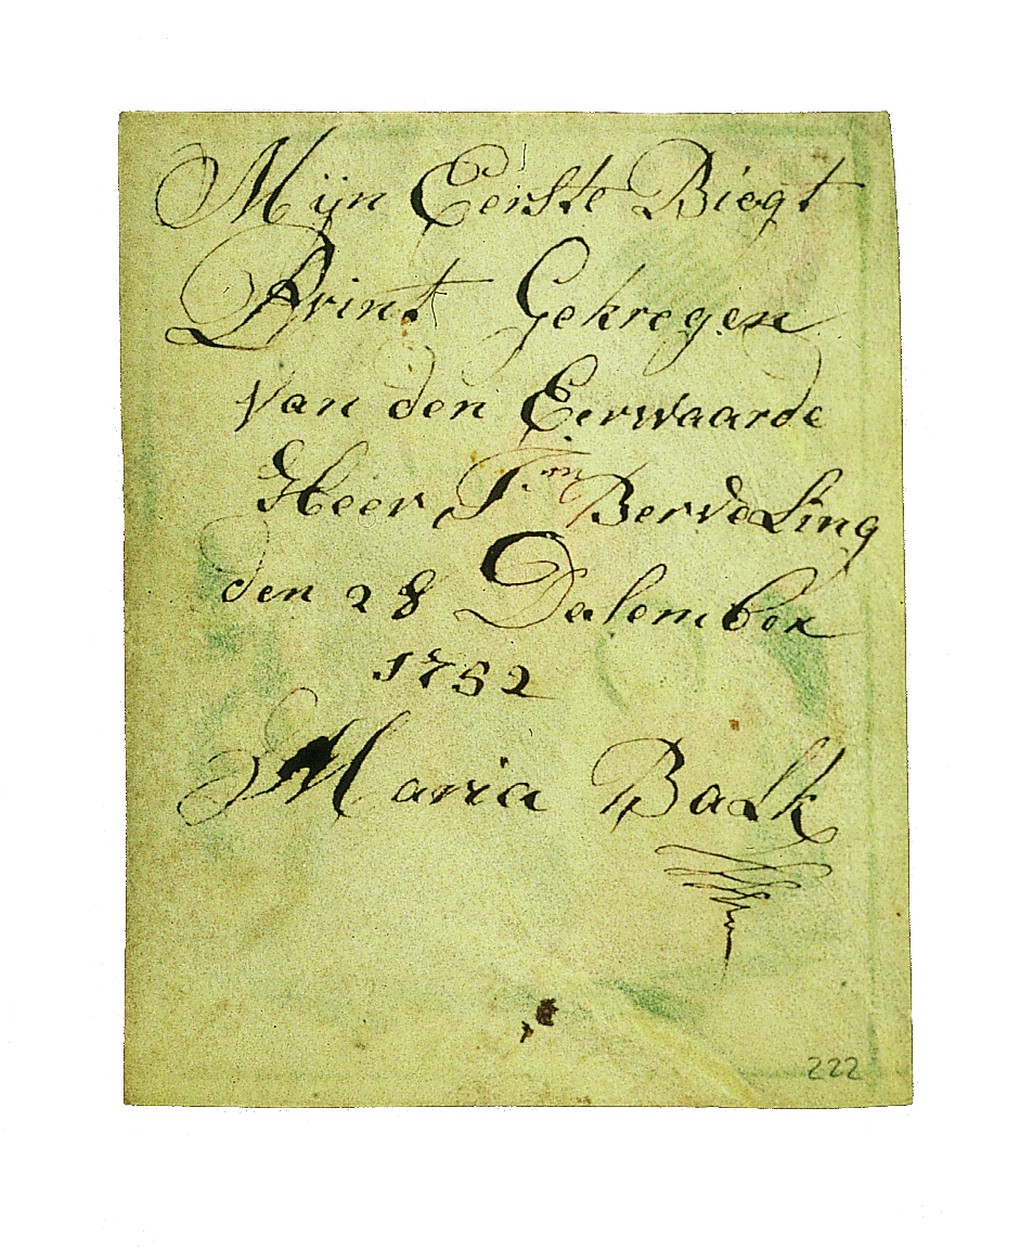 Mijn Eerste Biegt
Print Gekregen
van den Eerwaarde
Heer Berveling
den 28 Desember
1752
Maria Balk
222